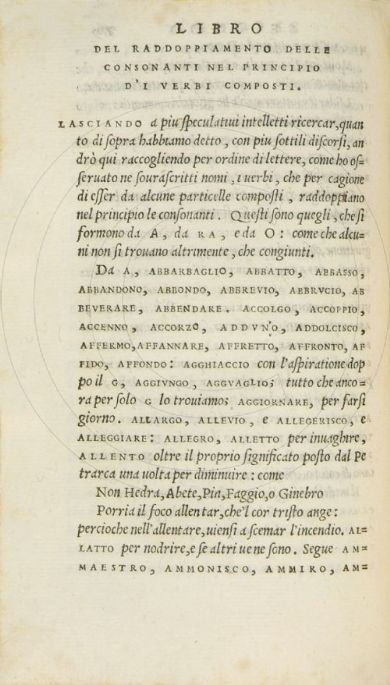 LIBRO
DEL RADDOPPIAMENTO DELLE
CONSONANTI NEL PRINCIPIO
D'I VERBI COMPOSTI.
LASCIANDO a piu speculatiui intelletti ricercar, quan
to di sopra habbiamo detto, con piu sottili discorsi, an
drò qui raccogliendo per ordine di lettere, come ho os=
seruato ne sourascritti nomi, i uerbi, che per cagione
di esser da alcune particelle composti, raddoppiano
nel principio le consonanti. Questi sono quegli, che si
formono da A, da RA, e da O: come che alcu=
ni non si trouano altrimente, che congiunti.
DA A, ABBARBAGLIO, ABBATTO, ABBASSO,
ABBANDONO, ABBONDO, ABBREVIO, ABBRVCIO, AB
BEVERARE, ABBENDARE. ACCOLGO, ACCOPPIO,
ACCENNO, ACCORZO, ADDVNO, ADDOLCISCO,
AFFERMO, AFFANNARE, AFFRETTO, AFFRONTO, AF
FIDO, AFFONDO: AGGHIACCIO con l'aspiratione dop
po il G, AGGIVNGO, AGGVAGLIO; tutto che anco=
ra per solo G lo trouiamo; AGGIORNARE, per farsi
giorno. ALLARGO, ALLEVIO, e ALLEGERISCO, e
ALLEGGIARE: ALLEGRO, ALLETTO per inuaghire,
ALLENTO oltre il proprio significato posto dal Pe
trarca una volta per diminuire: come
Non Hedra, Abete, Pin, Faggio, o Ginebro
Porria il foco allentar, che'l cor tristo ange:
percioche nell'allentare, uiensi a scemar l'incendio. AL=
LATTO per nodrire, e se altri ue ne sono. Segue AM=
MAESTRO, AMMONISCO, AMMIRO, AM=